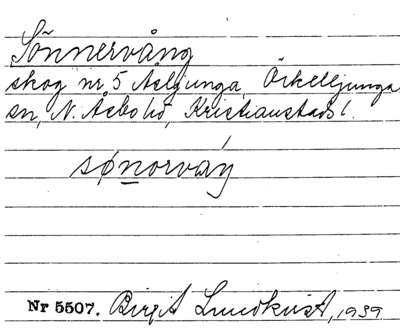 Sönnervång
skog nr 5 Aeljunga, Örkelljunga
sn, N. Åsbo hd, Kristianstads l.
sønorváŋ
Nr 5507. Birgit Lundkvist, 1939